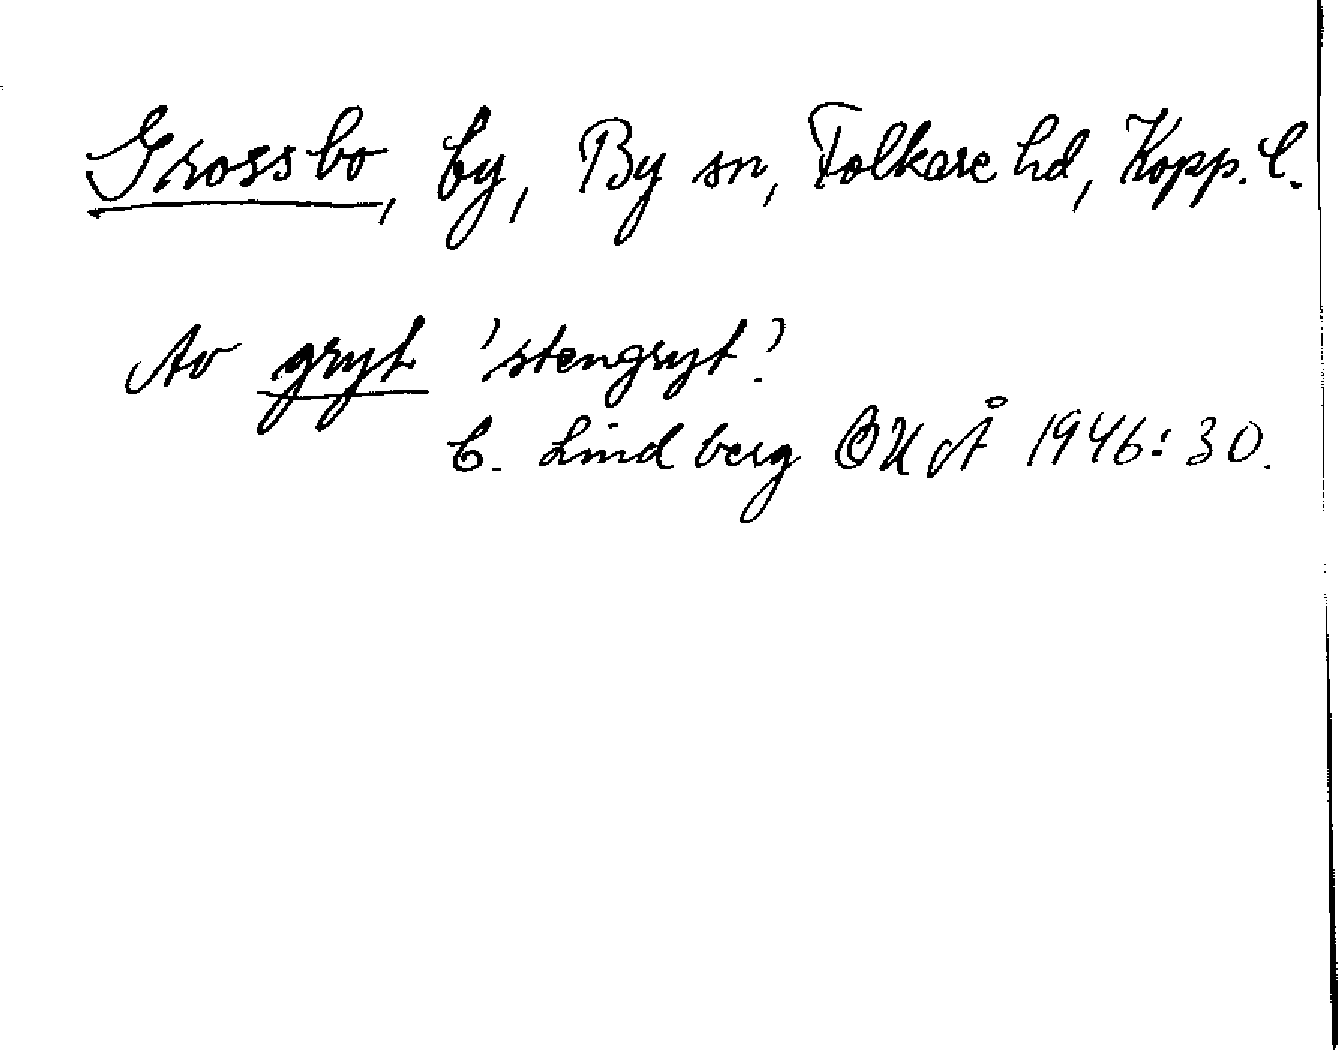 Grossbo, by, By sn, Folkare hd, Kopp. l.
Av gryt 'stengryt'.
C. Lindberg OUÅ 1946:30.